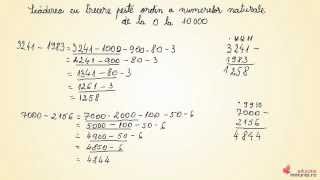 Scăderea cu trecere peste ordin a numerelor naturale
de la 0 la 10000
3241 - 1983 = 3241 - 1000 - 900 - 80 - 3
= 2241 - 900 - 80 - 3
= 1341 - 80 - 3
= 1261 - 3
= 1258
3241 -
1983
1258
7000 - 2156 = 7000 - 2000 - 100 - 50 - 6
= 5000 - 100 - 50 - 6
= 4900 - 50 - 6
= 4850 - 6
= 4844
9 9 10
7000 -
2156
4844